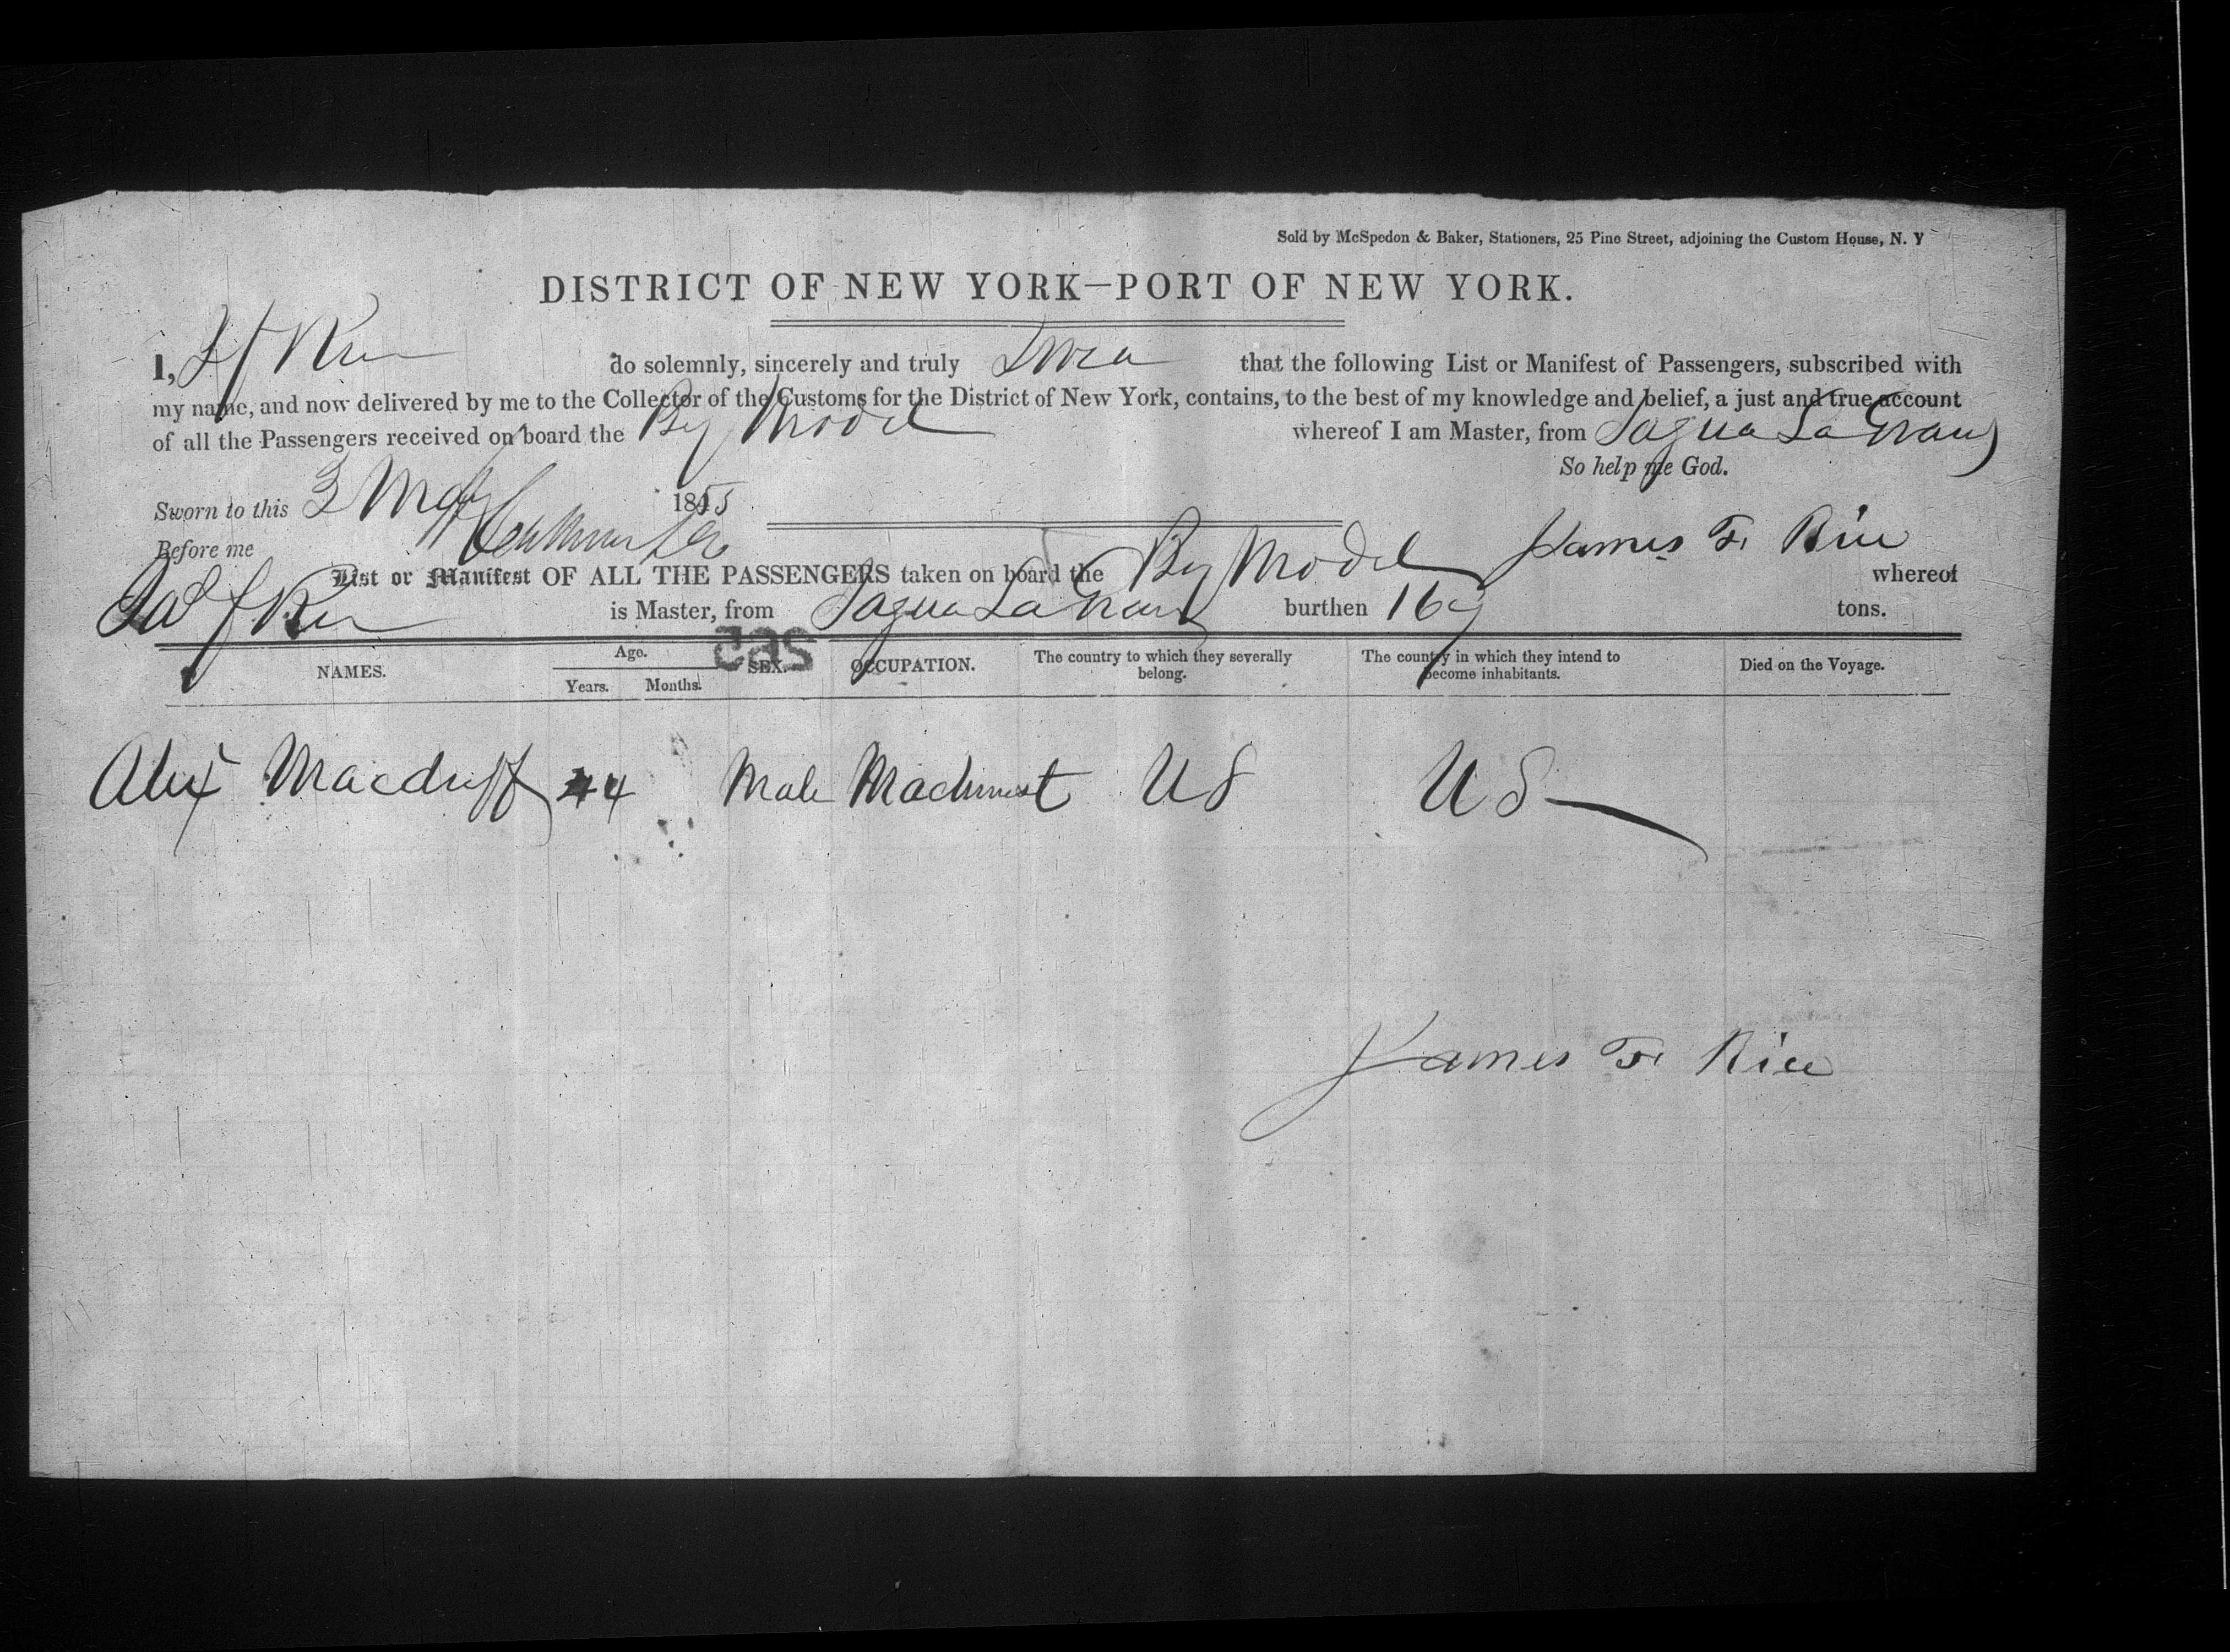 Sold by McSpedon & Baker, Stationers, 25 Pine Street, adjoining the Custom House, N. Y
DISTRICT OF NEW YORK—PORT OF NEW YORK.
I, J F Rice do solemnly, sincerely and truly Swear that the following List or Manifest of Passengers, subscribed with
my name, and now delivered by me to the Collector of the Customs for the District of New York, contains, to the best of my knowledge and belief, a just and true account
of all the Passengers received on board the Bg Model whereof I am Master, from Sagua La Grand
So help me God.
Sworn to this 3 May 1855
Before me James F. Rice
List or Manifest OF ALL THE PASSENGERS taken on board the Bg Model whereof
Jas F Rice is Master, from Sagua La Grand burthen 169 tons.
265
NAMES. Age. Years. Months. SEX. OCCUPATION. The country to which they severally belong. The country in which they intend to become inhabitants. Died on the Voyage.
Alex Macduff 44 Male Machinist US US
James F. Rice